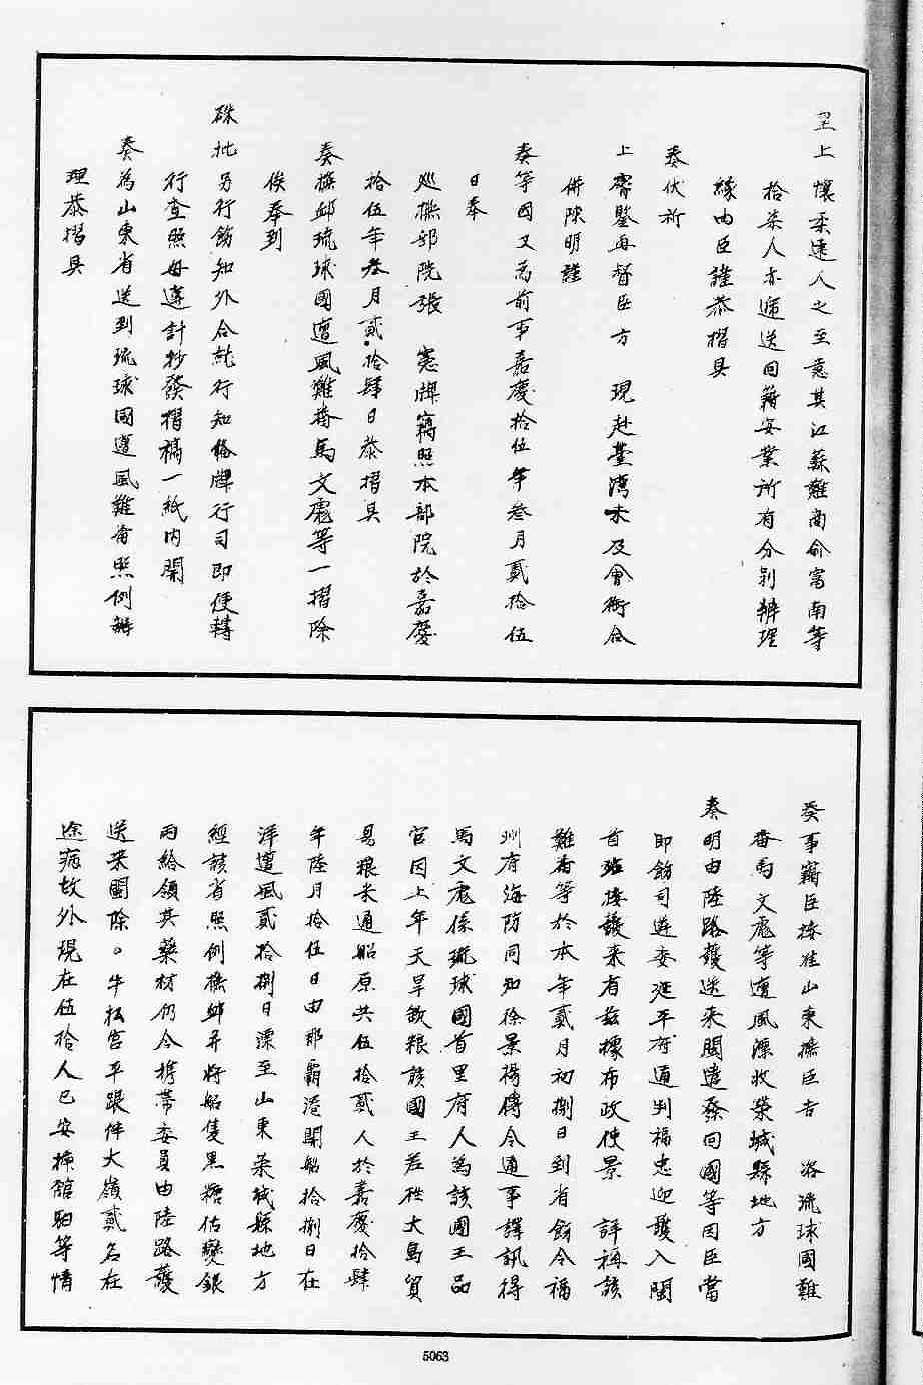 皇上懷柔遠人之至意其江蘇難商俞富南等
拾柒人亦遞送回籍安業所有分別辦理
緣由臣謹恭摺具
奏伏祈
上睿鑒再督臣方　現赴臺灣未及會銜合
併陳明謹
奏等因又爲前事嘉慶拾伍年叁月貳拾伍
日奉
巡撫部院張　憲牌竊照本部院於嘉慶
拾伍年叁月貳拾肆日恭摺具
奏撫卹琉球國遭風難番馬文鳳等一摺除
俟奉到
硃批另行飭知外合就行知俻牌行司即便轉
行查照毋違計抄發摺稿一紙內開
奏爲山東省送到琉球國遭風難番照例辦
理恭摺具
奏事竊臣接准山東撫臣吉　咨琉球國難
番馬文鳳等遭風漂收榮城縣地方
奏明由陸路護送來閩遣發回國等因臣當
即飭司遴委延平府通判福忠迎護入閩
首站接護來省茲據布政使景　詳稱該
難番等於本年貳月初捌日到省飭令福
州府海防同知徐景揚傳令通事譯訊得
馬文鳳係琉球國首里府人爲該國王品
官因上年天旱歉糧該國王差往大島貿
易糧米通船原共伍拾貳人於嘉慶拾肆
年陸月拾伍日由那霸港開船拾捌日在
洋遭風貳拾捌日漂至山東榮城縣地方
經該省照例撫卹并將船隻黑糖估變銀
兩給領其藥材仍令攜帶委員由陸路護
送來閩除。牛松宮平跟伴大嶺貳名在
途病故外現在伍拾人已安揷館驛等情
5063